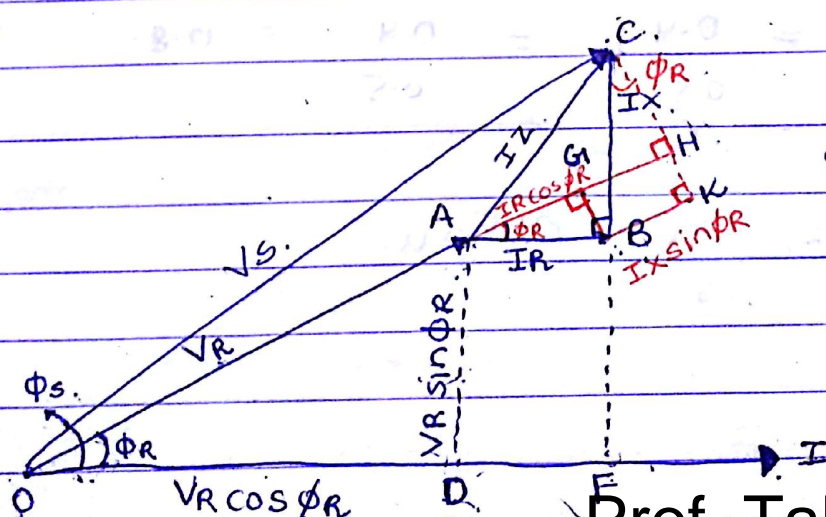 C.
ϕR
IX
IZ
H
G
IRcosϕR
K
A
ϕR
B
IR
IXsinϕR
VS.
VR
VR sinϕR
ϕs.
ϕR
I
O
VRcosϕR
D
E
Prof. Ta